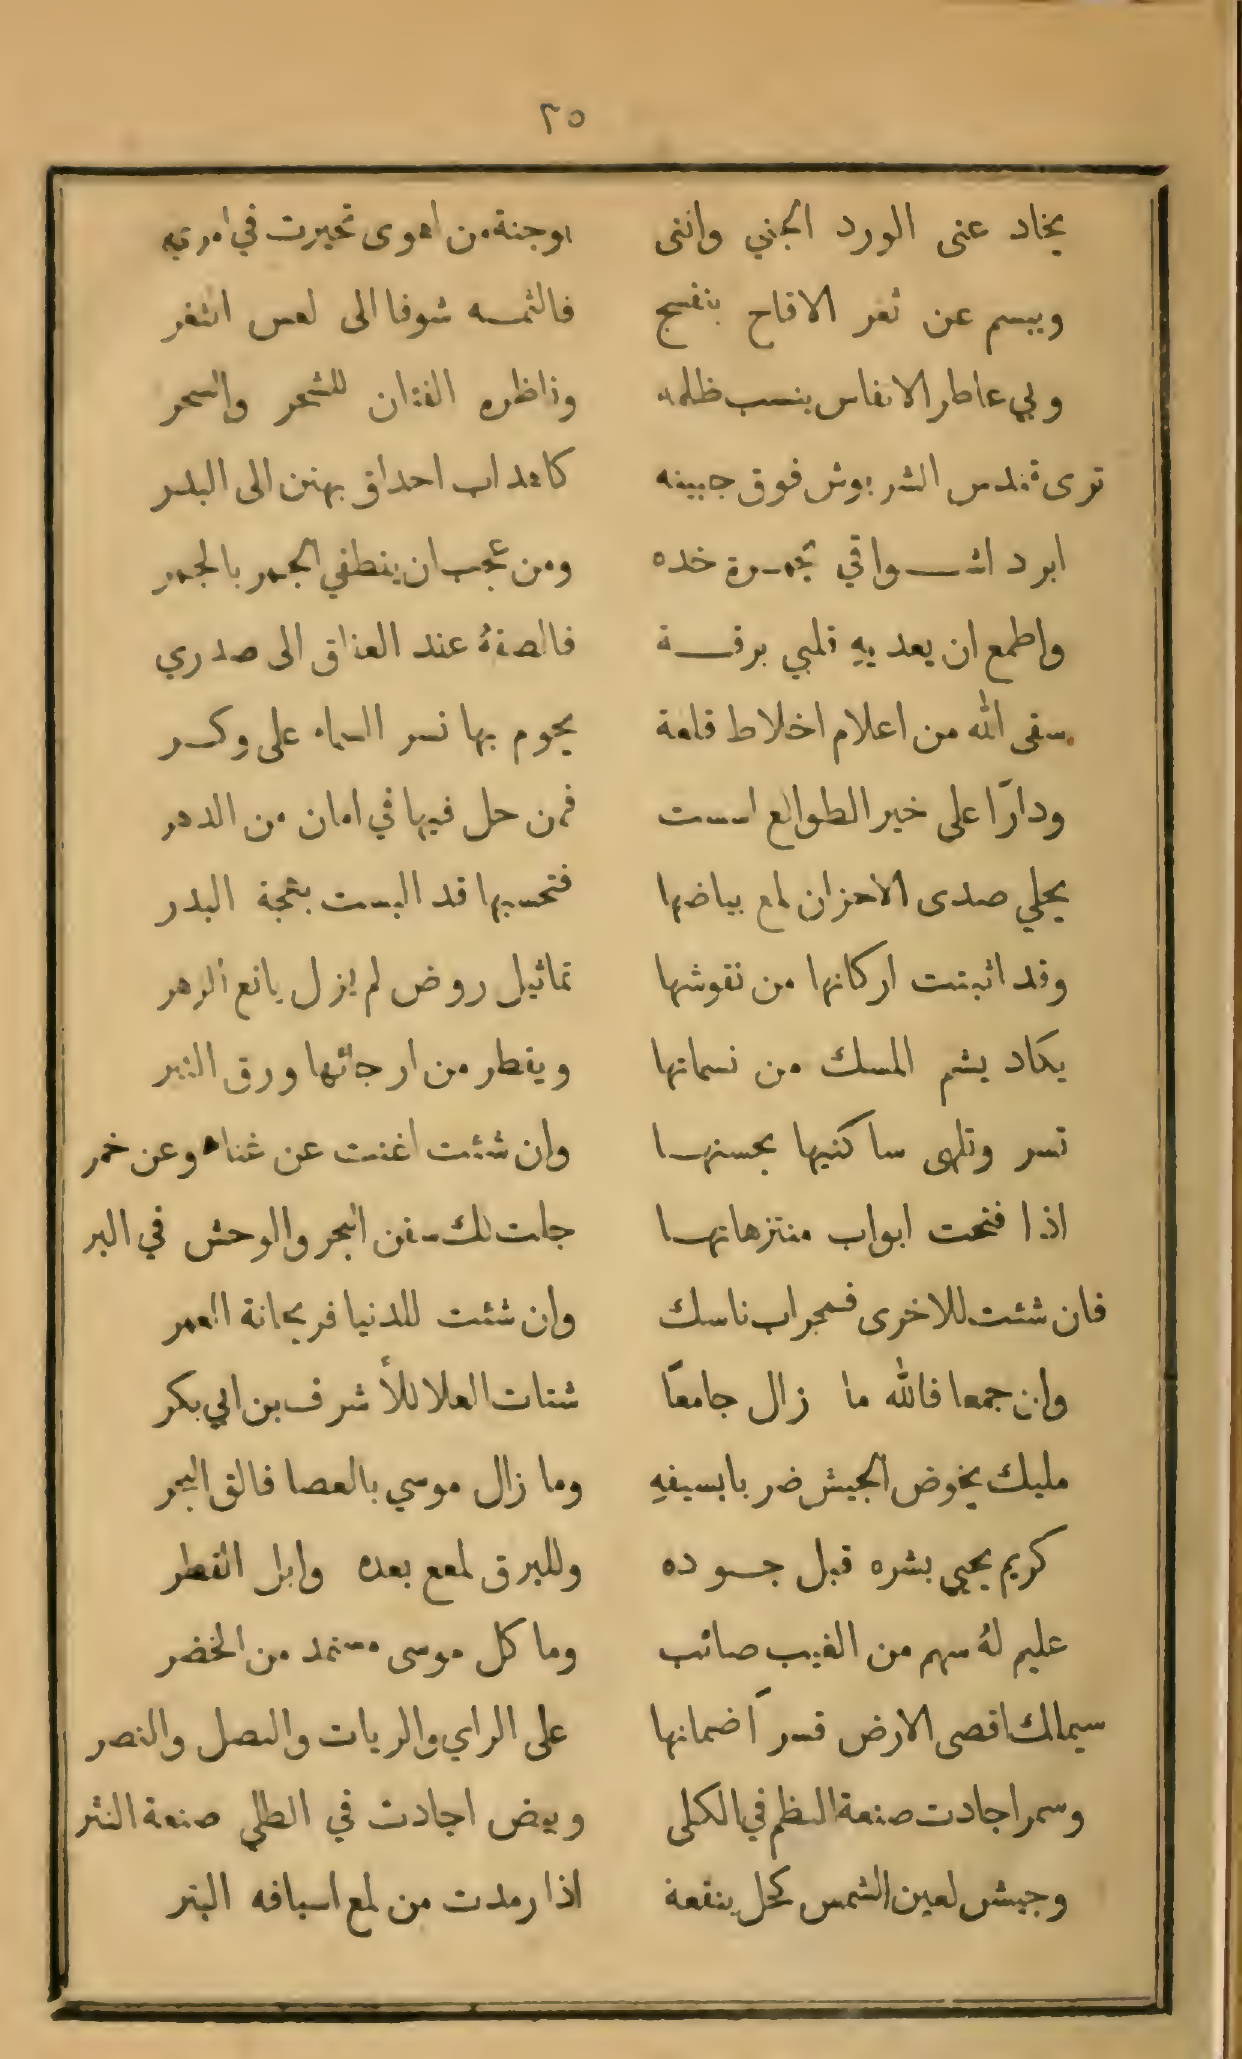 ٢٥
يخاد عنى الورد الجني وانني اوجنة من اهوى تحيرت في امري
ويبسم عن ثغر الاقاح بنفسج فالثمه شوقا الى لعس الثغر
وبي عاطر الانفاس ينسب ظلمه وناظره الفتان للشحر والسحر
ترى قندس الشربوش فوق جبينه كاهداب احداق بهتن الى البدر
ابرد اشواقي بجمرة خده ومن عجب ان ينطفي الجمر بالجمر
واطمع ان يعديهِ قلبي برقة فالصقهُ عند العناق الى صدري
سقى الله من اعلام اخلاط قلعة يحوم بها نسر السماء على وكر
ودارًا على خير الطوالع اسست فمن حل فيها في امان من الدهر
يجلي صدى الاحزان لمع بياضها فتحسبها قد البست بهجة البدر
وقد اثبتت اركانها من نقوشها تماثيل روض لم يزل يانع الزهر
يكاد يشم المسك من نسماتها ويقطر من ارجائها ورق التبر
تسر وتلهى ساكنيها بحسنها وان شئت اغنت عن غناه وعن خمر
اذا فتحت ابواب منتزهاتها جلت لك سفن البحر والوحش في البر
فان شئت للاخرى فمحراب ناسك وان شئت للدنيا فريحانة العمر
وان جمعا فالله ما زال جامعًا شتات العلا للأشرف بن ابي بكر
مليك يخوض الجيش ضربا بسيفهِ وما زال موسي بالعصا فالق البحر
كريم يحيى بشره قبل جوده وللبرق لمع بعده وابل القطر
عليم لهُ سهم من الغيب صائب وما كل موسى مستمد من الخضر
سيملك اقصى الارض قسرًا ضمانها على الراي والريات والنصل والنصر
وسمر اجادت صنعة النظم في الكلى وبيض اجادت في الطلي صنعة النثر
وجيش لعين الشمس كحل بنقعة اذا رمدت من لمع اسيافه البتر